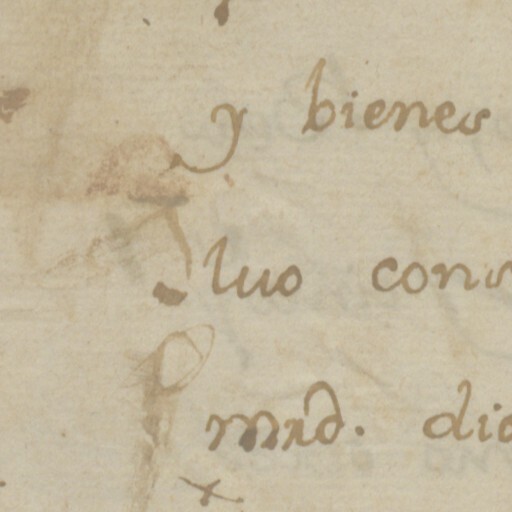 y bienes
luo cons
mrd. dio